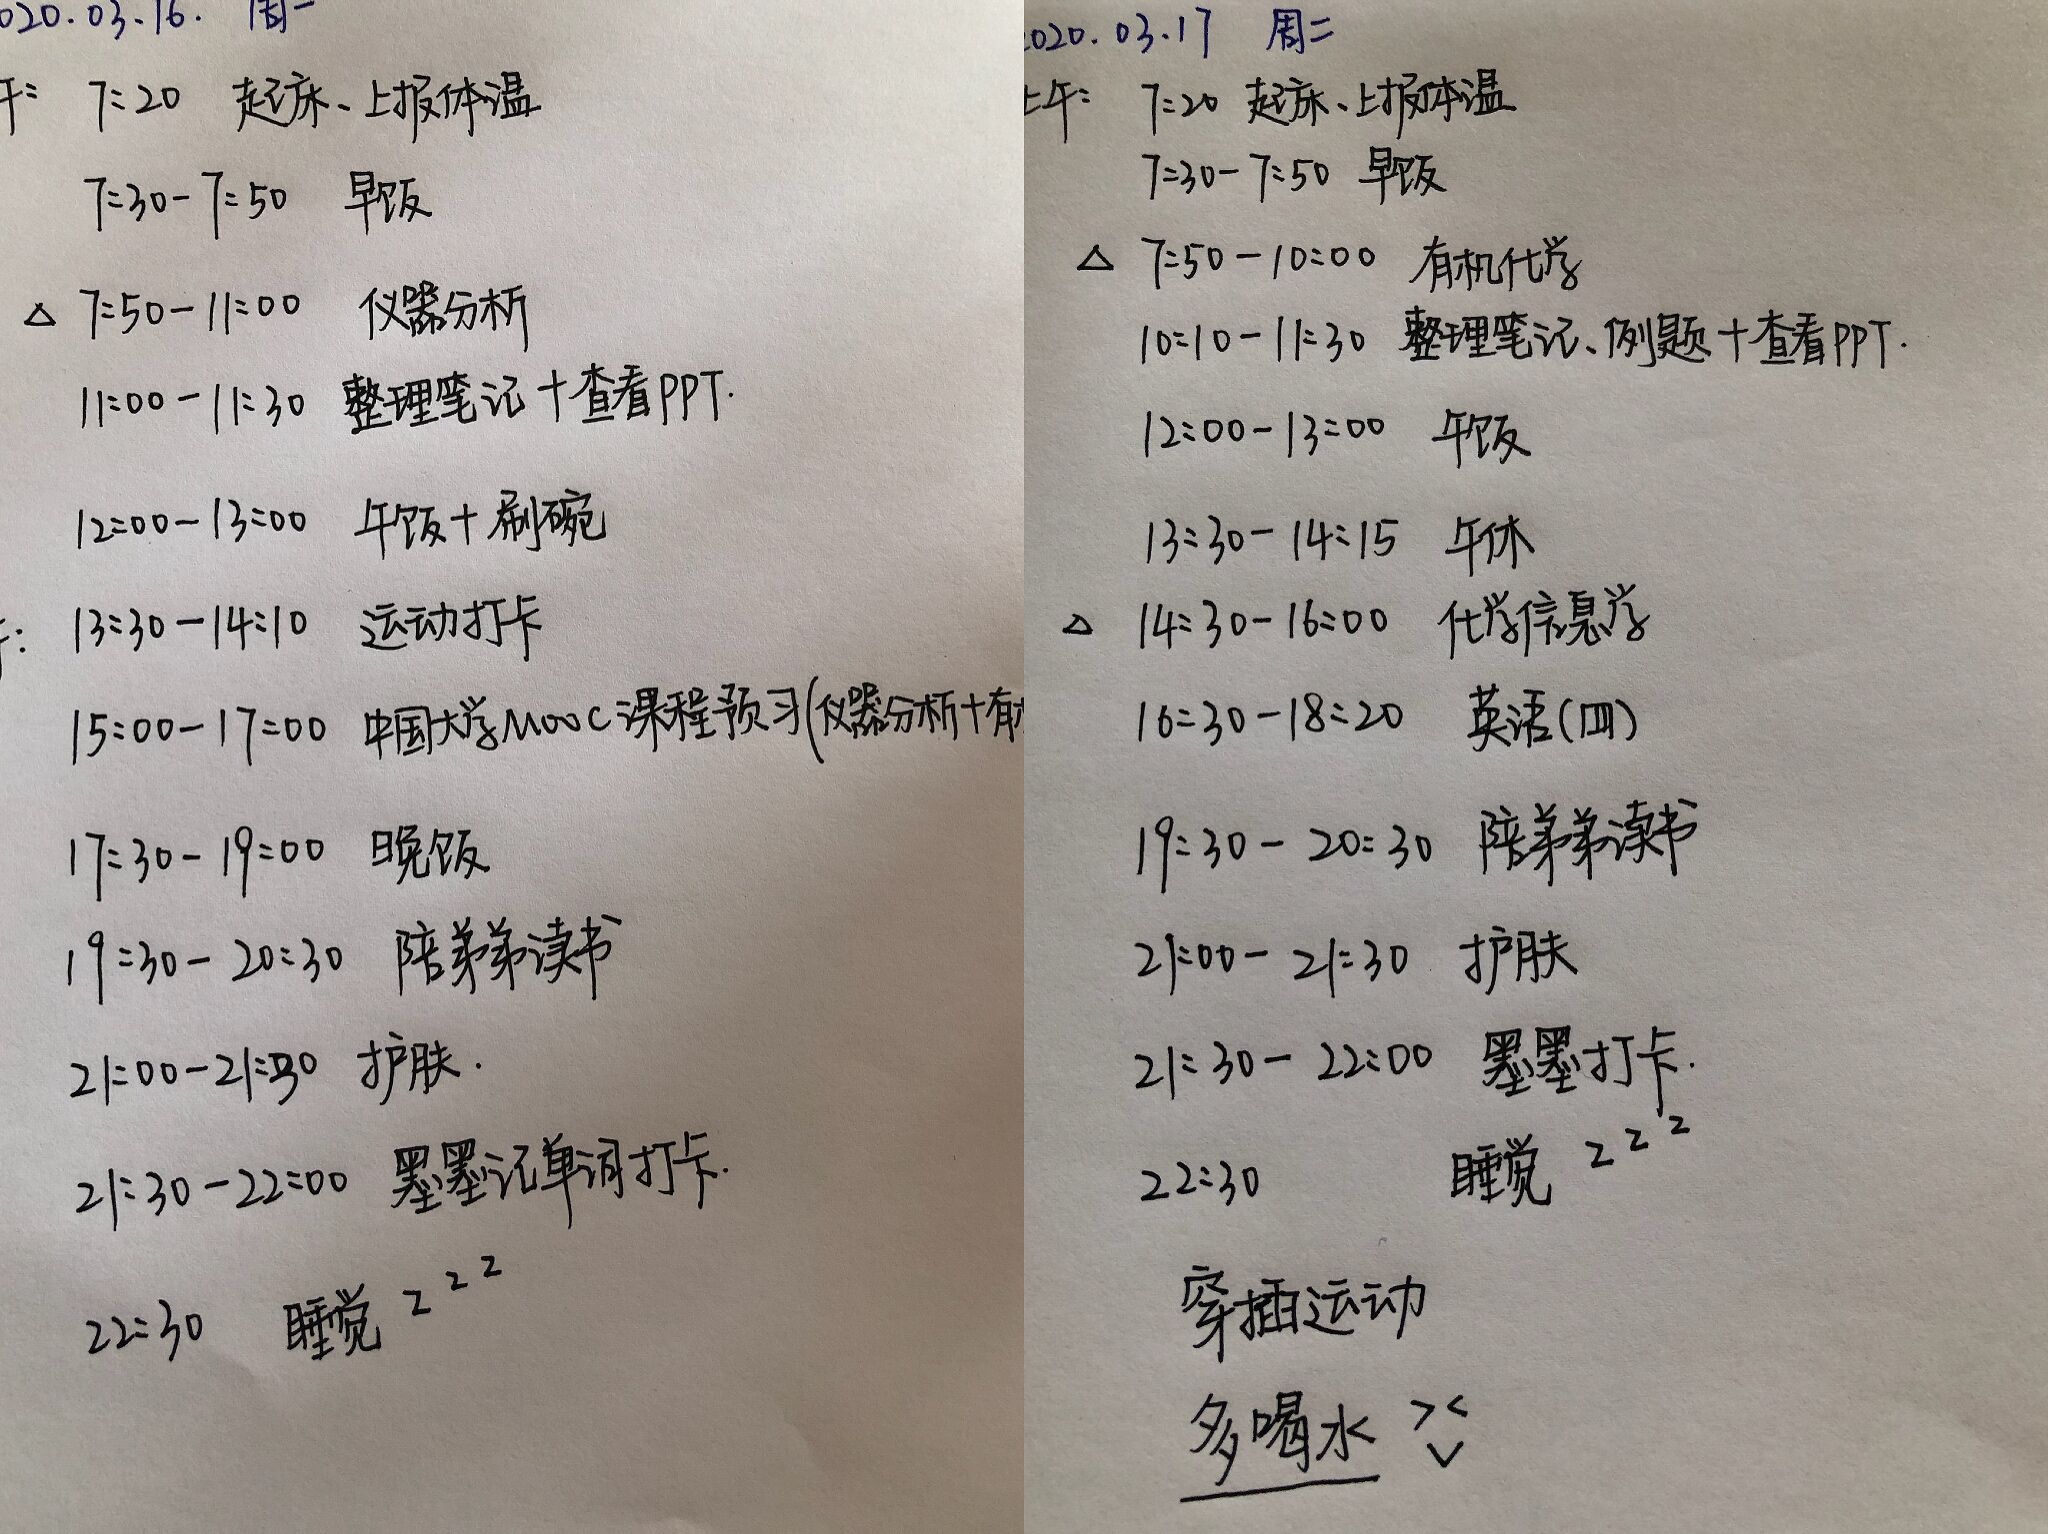 020.03.16. 周一
午: 7:20 起床、上报体温
7:30-7:50 早饭
△ 7:50-11:00 仪器分析
11:00-11:30 整理笔记+查看PPT.
12:00-13:00 午饭+刷碗
13:30-14:10 运动打卡
15:00-17:00 中国大学MOOC课程预习(仪器分析+有
17:30-19:00 晚饭
19:30-20:30 陪弟弟读书
21:00-21:30 护肤.
21:30-22:00 墨墨记单词打卡.
22:30 睡觉 z z z
2020.03.17 周二
上午: 7:20 起床、上报体温
7:30-7:50 早饭
△ 7:50-10:00 有机化学
10:10-11:30 整理笔记、例题+查看PPT.
12:00-13:00 午饭
13:30-14:15 午休
△ 14:30-16:00 化学信息学
16:30-18:20 英语(四)
19:30-20:30 陪弟弟读书
21:00-21:30 护肤
21:30-22:00 墨墨打卡.
22:30 睡觉 z z z
穿插运动
多喝水